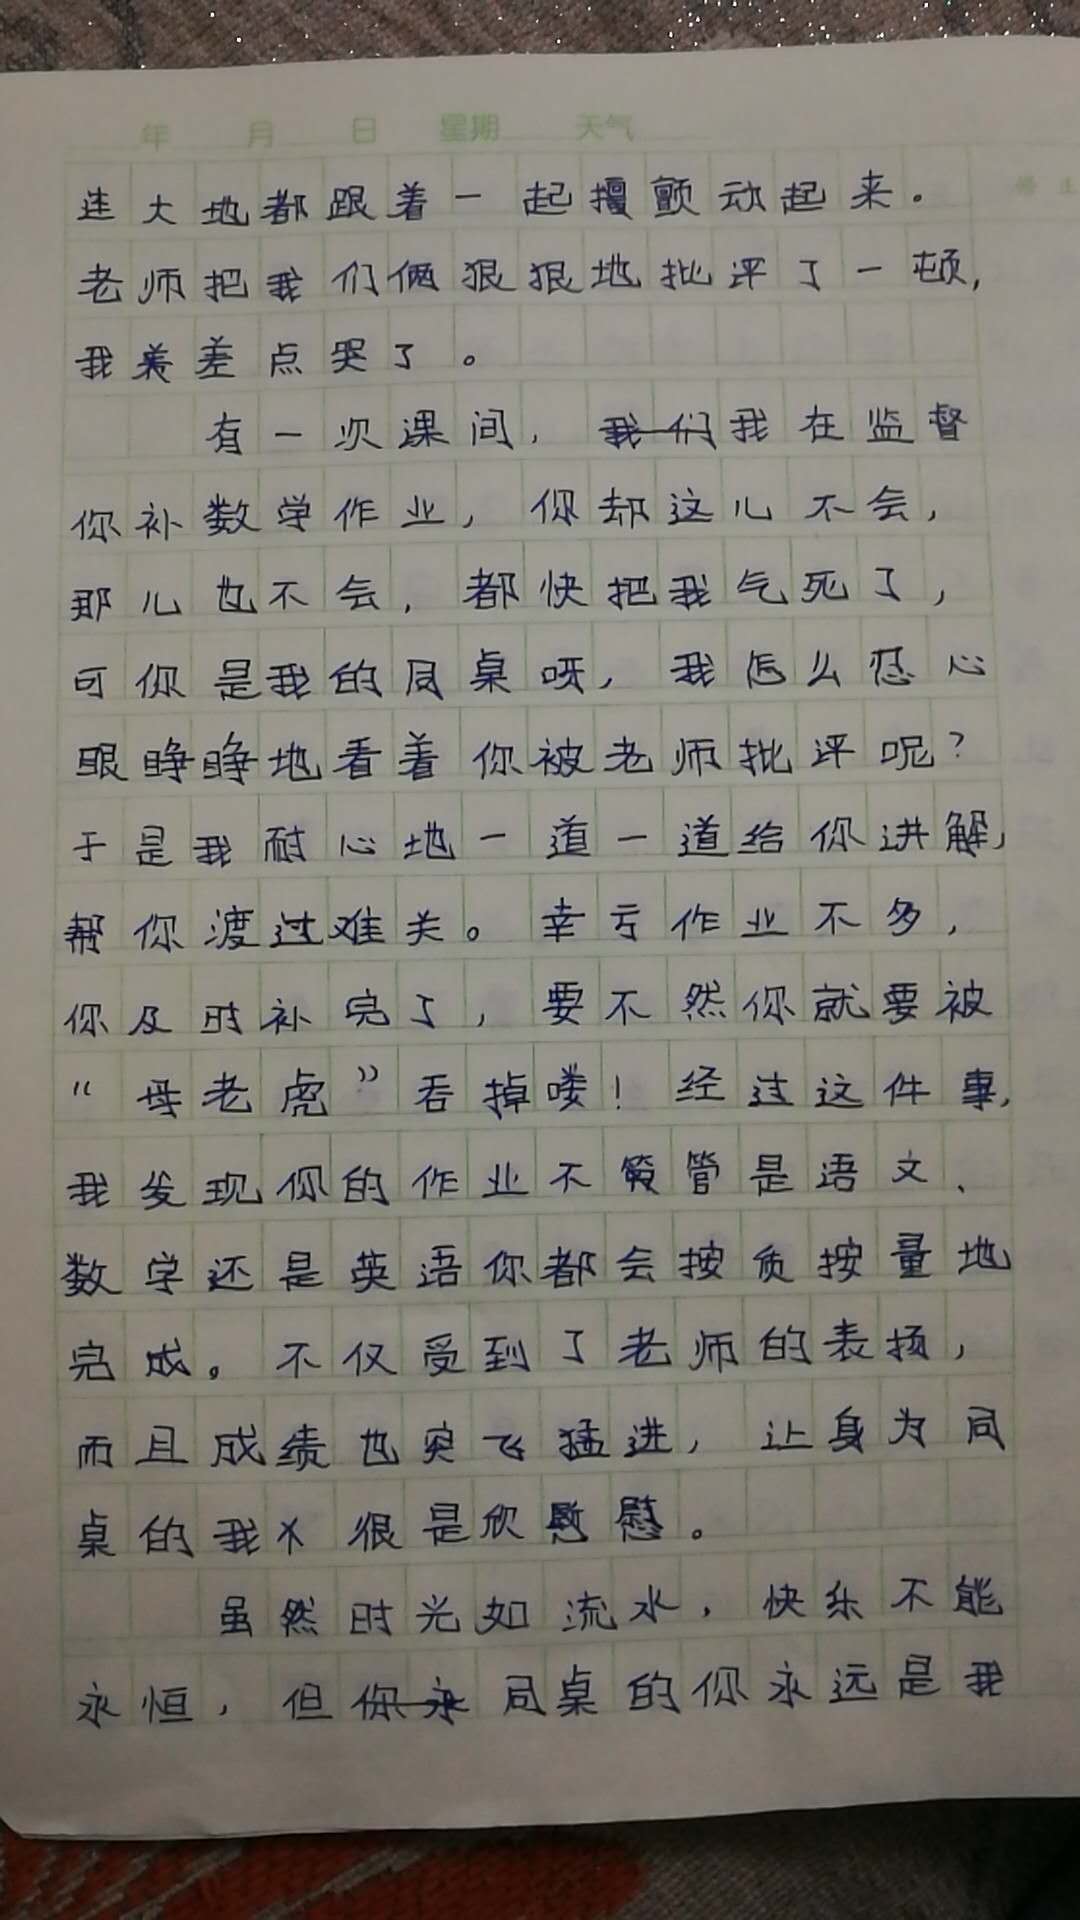 年 月 日 星期 天气
连大地都跟着一起颤动起来。
老师把我们俩狠狠地批评了一顿,
我差点哭了。
有一次课间,我们我在监督
你补数学作业,你却这儿不会,
那儿也不会,都快把我气死了,
可你是我的同桌呀,我怎么忍心
眼睁睁地看着你被老师批评呢?
于是我耐心地一道一道给你讲解,
帮你渡过难关。幸亏作业不多,
你及时补完了,要不然你就要被
“母老虎”吞掉喽!经过这件事,
我发现你的作业不管是语文、
数学还是英语你都会按质按量地
完成。不仅受到了老师的表扬,
而且成绩也突飞猛进,让身为同
桌的我很是欣慰。
虽然时光如流水,快乐不能
永恒,但你永同桌的你永远是我